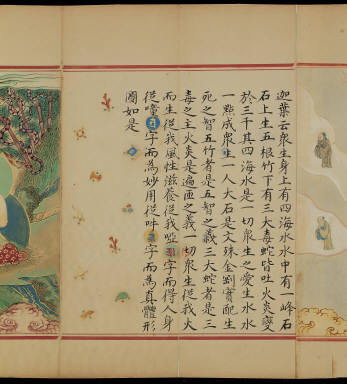 迦葉云衆生身上有四海水水中有一峰石
石上生五根竹下有三大毒蛇皆吐火炎變
於三千其四海水是一切衆生之愛生水水
一點成衆生一人大石是文殊金剛實配生
死之智五竹者是五智之義三大蛇者是三
毒之主火炎是遍匝之義一切衆生從我火
而生從我風性滋養從我啞字而得人身
從唵字而為妙用從吽字而為真體形
圖如是